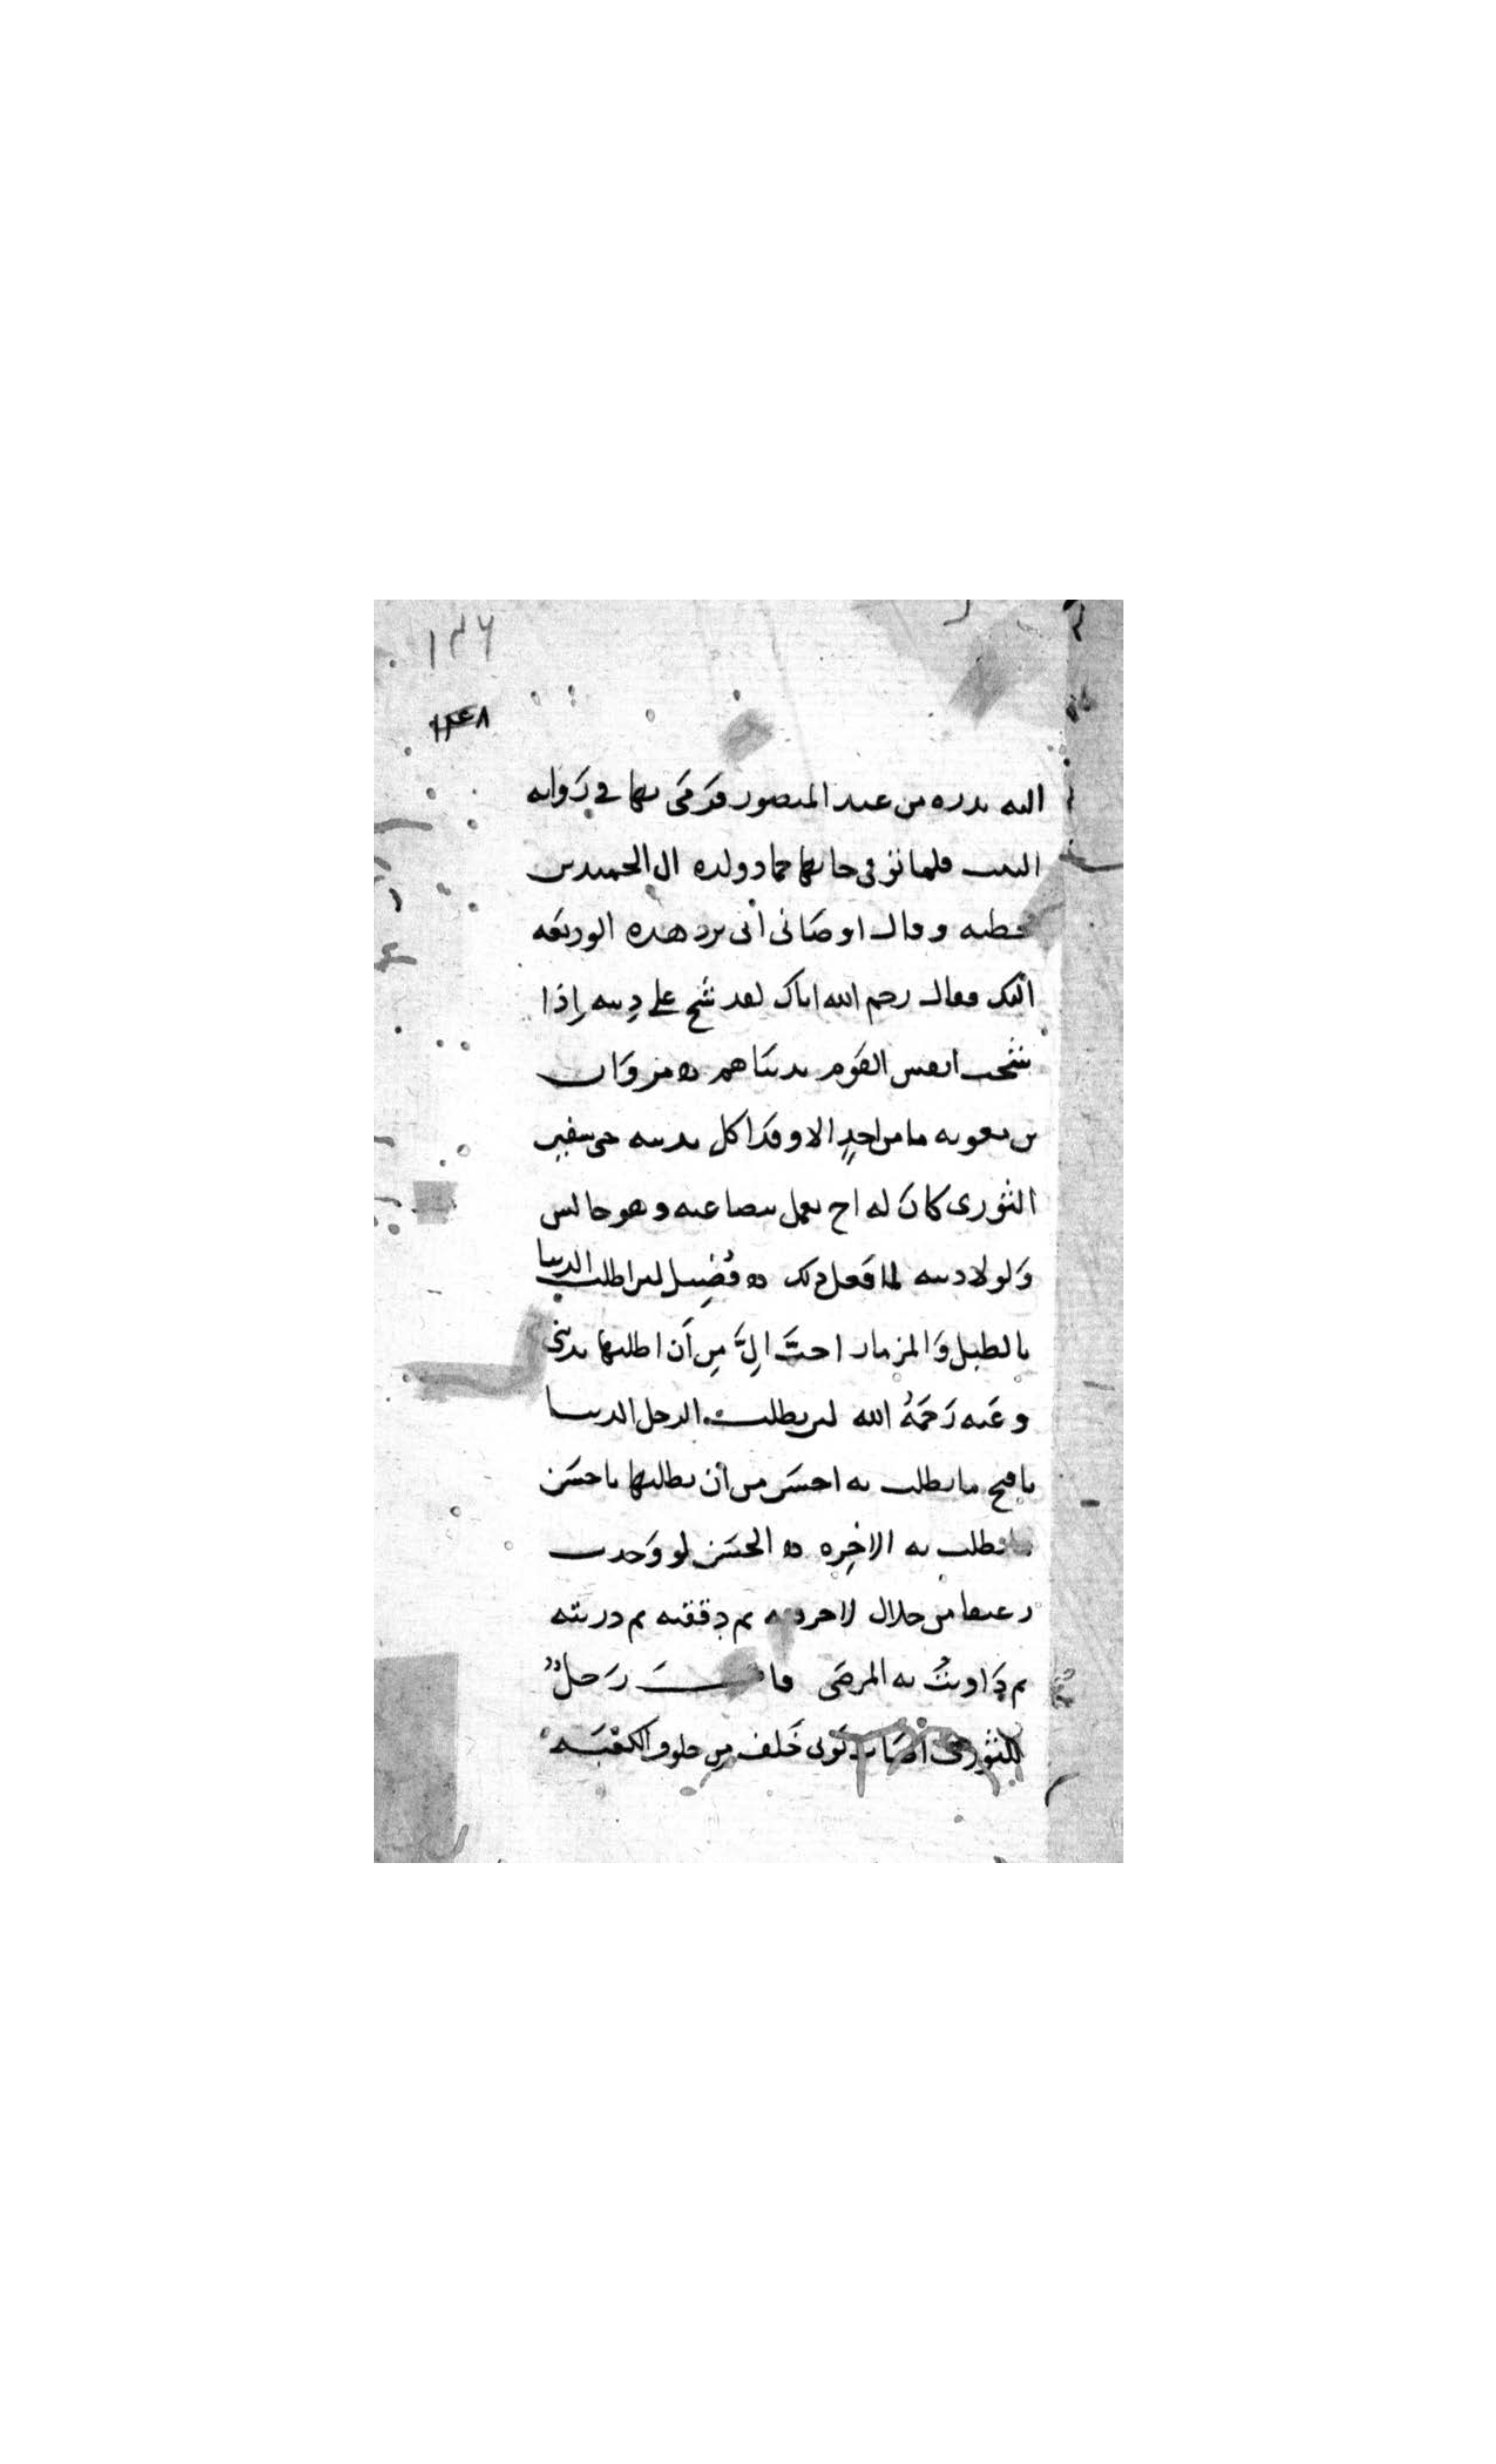 ١٣٦
١٣٤٨
اليه بدره من عند المنصور فرمى بها في زوايه
البيت فلما توفي جا بها حماد ولده الى الحسن بن
قحطبه وقال اوصاني أبي برد هذه الوديعه
اليك فقال رحم الله اباك لقد شح على دينه إذا
شحت انفس القوم بدنياهم ۞ مروان
بن معويه ما من احدٍ الا وقد اكل بدينه حتى سفين
الثورى كان له اخ يعمل ببضاعته وهو جالس
وَلولا دينه لما فعل ذلك ۞ فُضِيل لىن اطلب الدنيا
بالطبل وَالمزمار احبَّ الِىَّ مِن أن اطلبها بدينى
وعَنه رَحمَهُ الله لىن يطلب الرجل الدنيا
باقبح ما يطلب به احسَن من أن يطلبها باحسَن
ما تطلب به الاخِره ۞ الحسَن لو وَجدت
رغيفا من حلال لاحرقته ثم دققته ثم دريته
ثم دَاويتُ به المرضَى قالت رَجلٌ
للثورى اصَاب ثوبى خَلف مِن خلوق الكعبَه